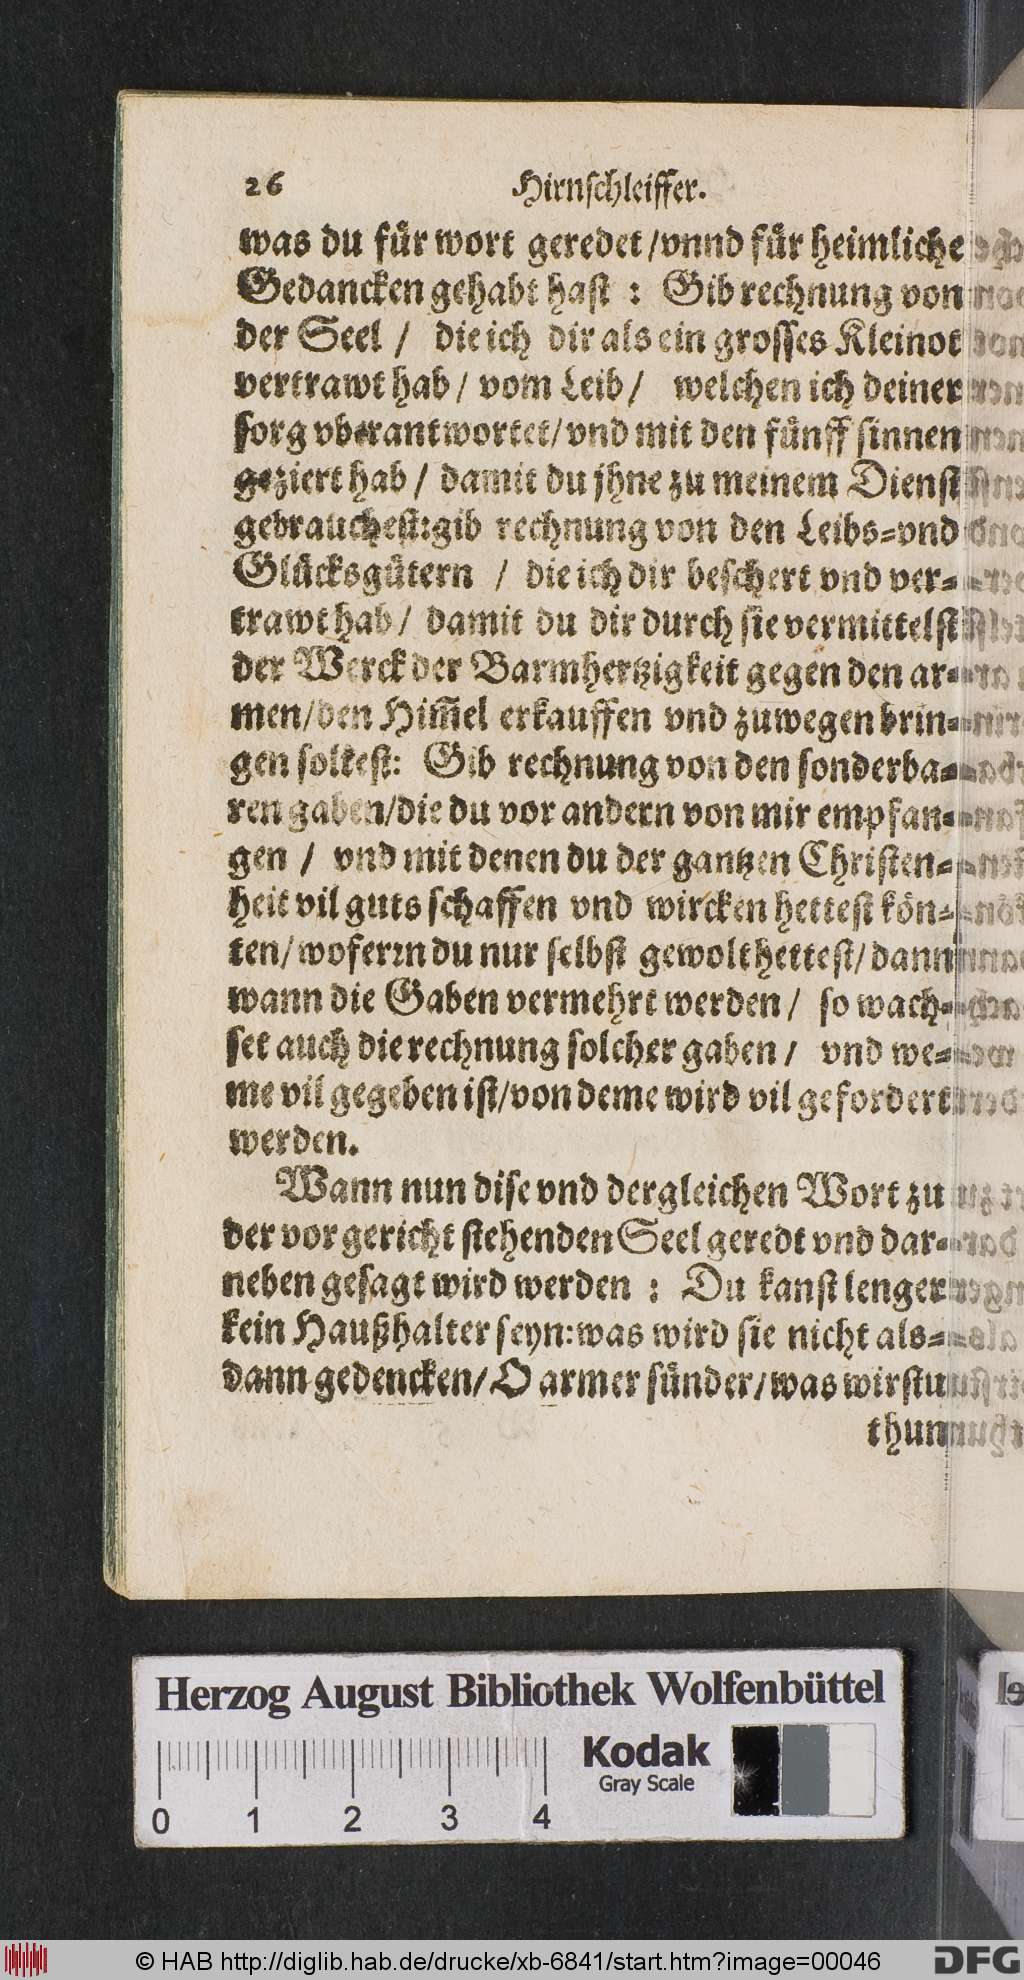 26 Hirnschleiffer.
was du für wort geredet/vnnd für heimliche
Gedancken gehabt hast : Gib rechnung von
der Seel / die ich dir als ein grosses Kleinot
vertrawt hab/ vom Leib/ welchen ich deiner
sorg vberantwortet/vnd mit den fünff sinnen
geziert hab/ damit du jhne zu meinem Dienst
gebrauchest:gib rechnung von den Leibs=vnd
Glücksgütern / die ich dir beschert vnd ver=
trawt hab/ damit du dir durch sie vermittelst
der Werck der Barmhertzigkeit gegen den ar=
men/den Him̃el erkauffen vnd zuwegen brin=
gen soltest: Gib rechnung von den sonderba=
ren gaben/die du vor andern von mir empfan=
gen / vnd mit denen du der gantzen Christen=
heit vil guts schaffen vnd wircken hettest kön=
ten/woferrn du nur selbst gewolt hettest/dann
wann die Gaben vermehrt werden/ so wach=
set auch die rechnung solcher gaben/ vnd we=
me vil gegeben ist/von deme wird vil gefordert
werden.
Wann nun dise vnd dergleichen Wort zu
der vor gericht stehenden Seel geredt vnd dar=
neben gesagt wird werden : Du kanst lenger
kein Haußhalter seyn:was wird sie nicht als=
dann gedencken/O armer sünder/was wirstu
thun
Herzog August Bibliothek Wolfenbüttel
Kodak
Gray Scale
0 1 2 3 4
© HAB http://diglib.hab.de/drucke/xb-6841/start.htm?image=00046
DFG